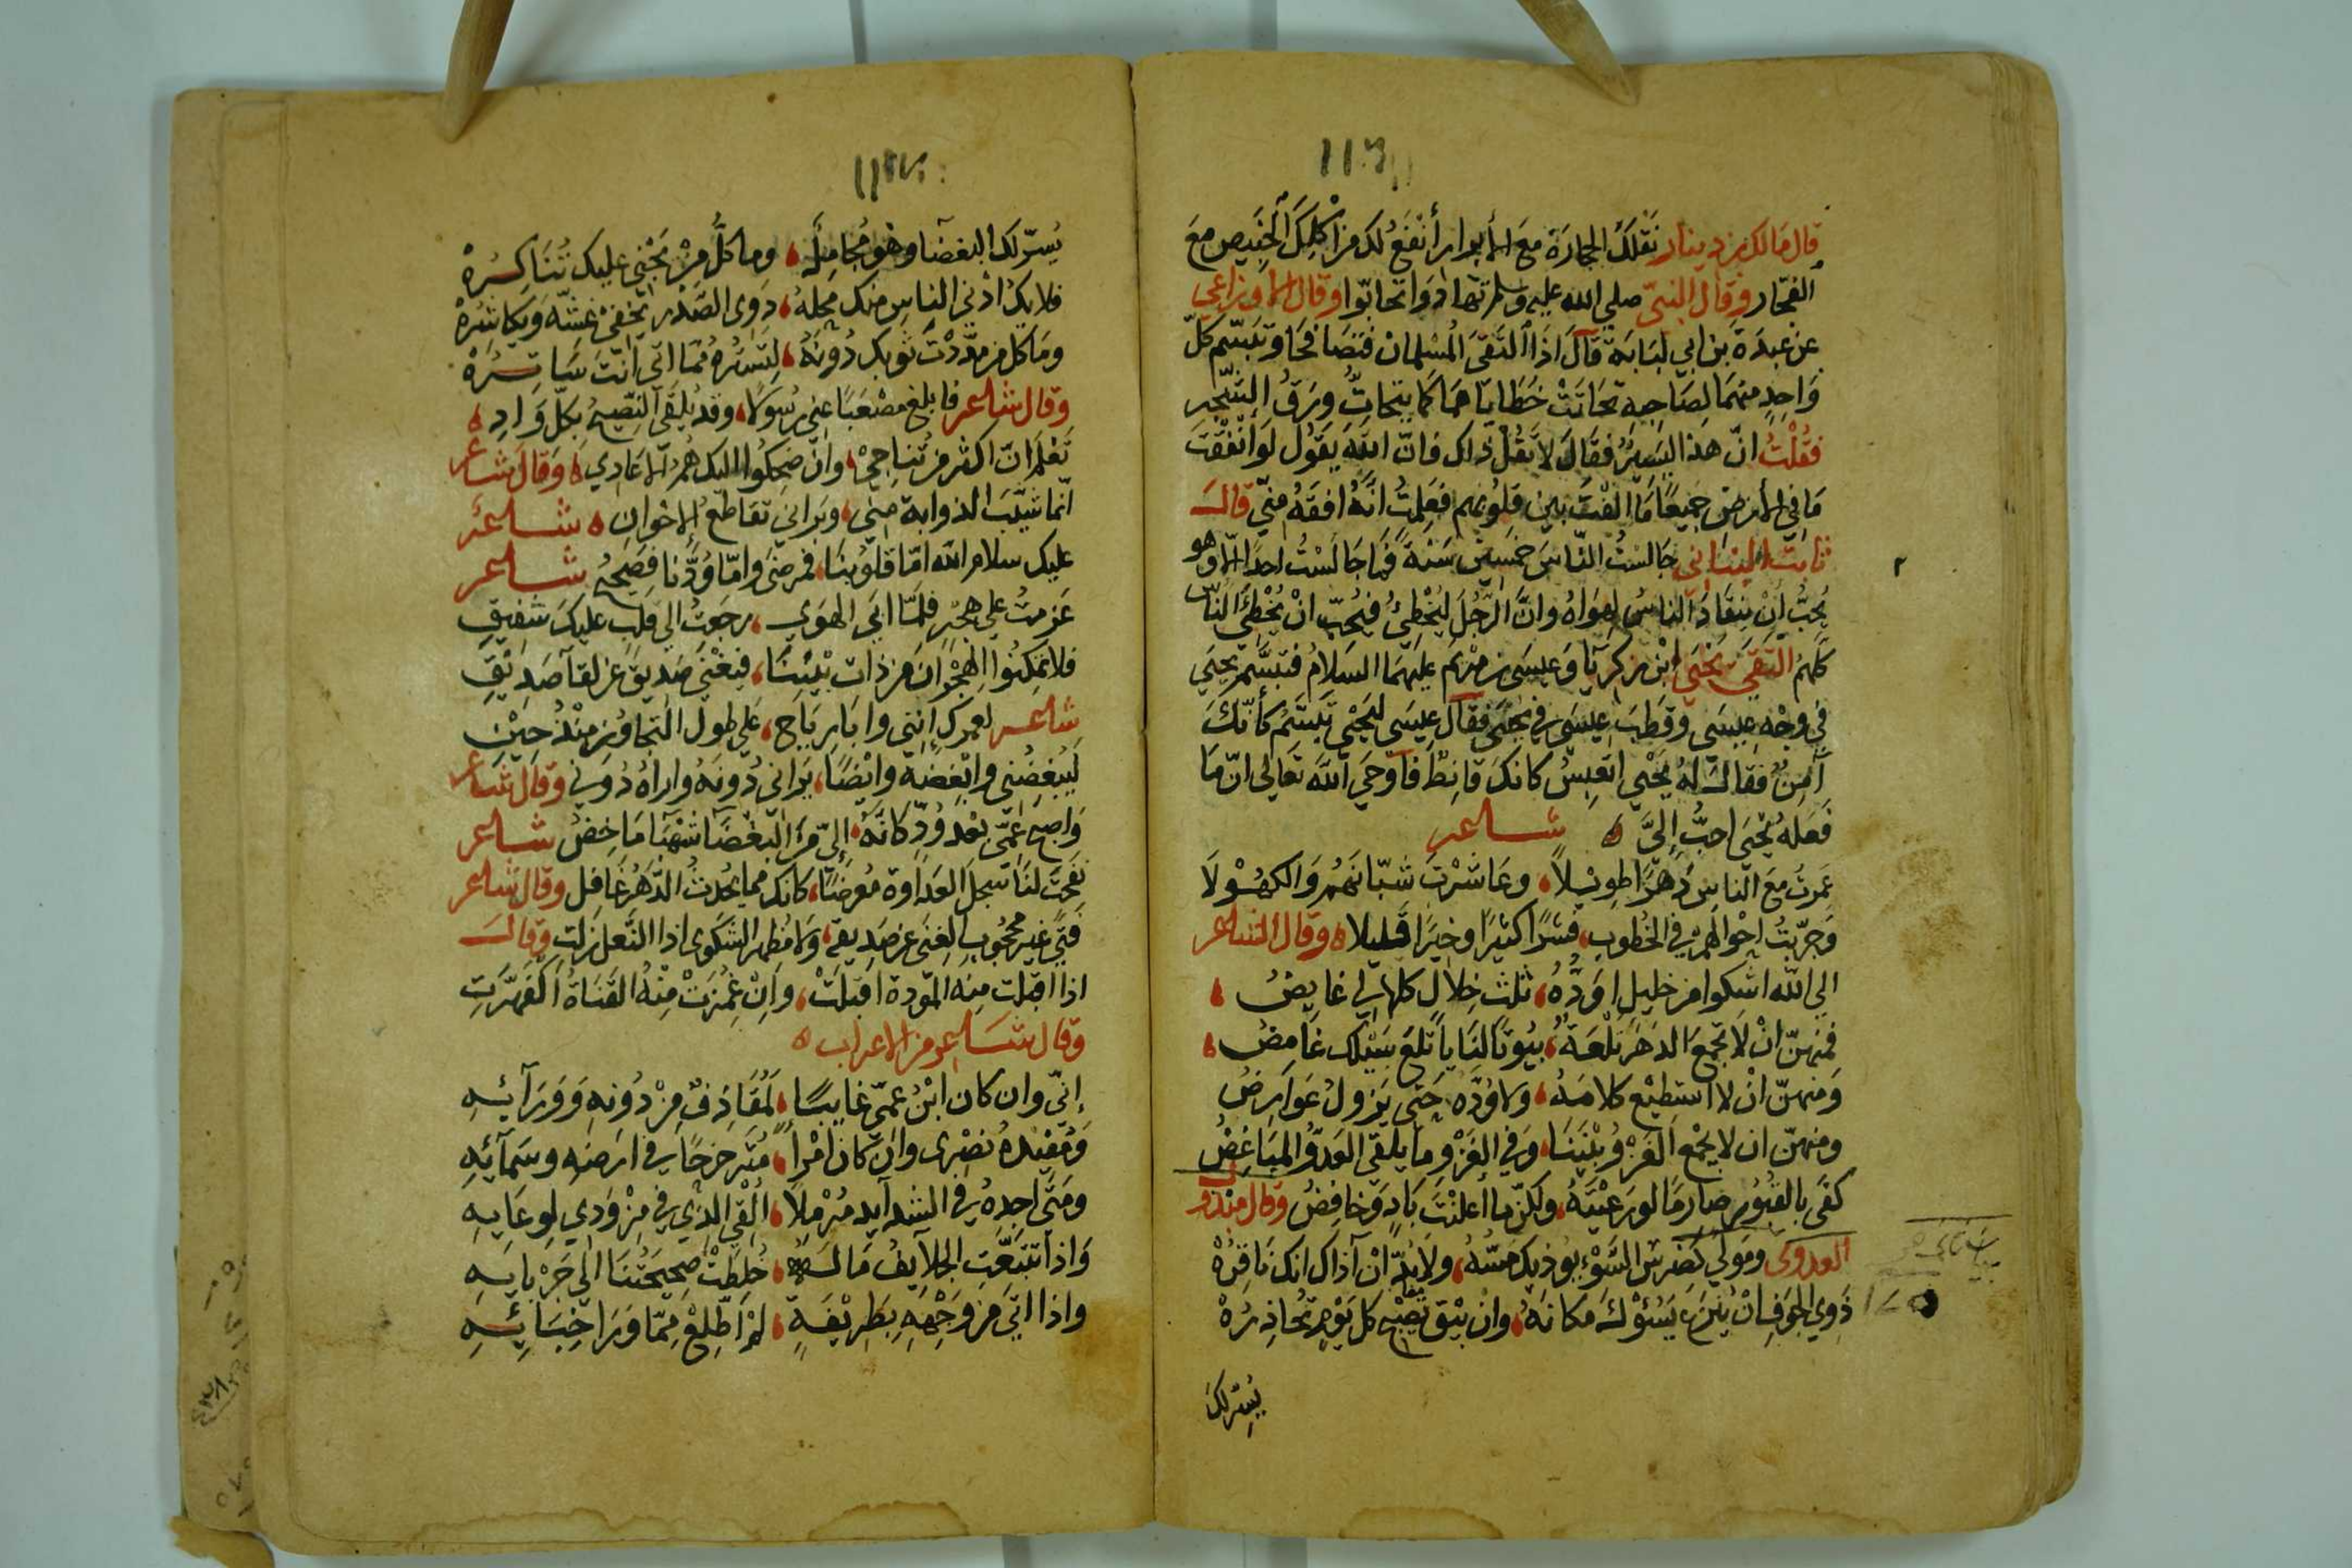 قال مالك بن دينار نَقْلَكَ الحجارة مع الأبرار أنْفَعُ لك من أكلِكَ الخَبِيص معَ
الفجّار وقال النبيّ صلي الله عليه وسلم تهادَوا تحابّوا وقال الاوزاعي
عن عبدَة بن ابي لبَابَة قالَ اذَا التَقىَ المُسْلمان فتَصَافحَا وتبَسّم كلّ
وَاحِدٍ منهمَا لصَاحِبه تحَاتَتْ خَطَايَاهمَا كمَا يتحَاتُّ ورَقُ الشّجر
فقُلْتُ انّ هذا ليَسِيرُ فقَالَ لا تقُلْ ذاك فانّ اللهَ يقوُل لَو انْفَقْتَ
مَا في الأرضِ جميعًا مَا الّفْتَ بينِ قلوُبهم فعَلِمتُ انّهُ افقَهُ منيّ قالَ
ثابت البناني جالستُ النّاسَ خمسِين سَنة فمَا جَالَسْتُ احدًا الّا وهو
يُحبُّ انْ ينقَادَ الناسُ لهوَاهُ وانَّ الرّجُلَ ليُخْطِئُ فيُحبّ انْ يُخْطِئَ النّاس
كلّهمُ التقَي يحَيَي ابْن زكريّا وَعيسَى بن مرْيم عليهَما السَلامُ فتبَسَّم يحيَي
في وجْهِ عيِسَي وقطّبَ عيسَي في يحيَى فقال عيسَى ليَحْيَي تبتسَّمُ كأنّكَ
آمِن فقالَ لهُ يحَيي اتعبِسُ كانكَ قانِط فأوحَي الله تعَالى انّ مَا
فعَلهُ يحْيَى احبُّ إليَّ ه شاعر
عَمرتُ معَ النّاسِ دَهْرًا طويْلاً، وعَاشَرْتَ شبّانهُم وَالكهُوْلاَ
وَجرّبتُ احْوالهمْ في الخُطوبِ، فشرًا كثيرًا وخيرًا قليلا ه وقال الشاعر
الي اللّه اشكوا من خليلٍ اوَدُّهُ، ثلث خِلالٍ كلها لي غايِضُ ،
فمنهنّ انْ لا تجمعَ الدَهرَ تَلْعَةٌ، بيُوتاً لنَا يا تَلعَ سَيْلك غامضُ ،
وَمنهنّ انْ لا استطيْع كلامَهُ، ولا وُدّه حَتى يَزولُ عَوارِضُ
ومنهنّ ان لا يجْمع الغَزْوُ بيْنَنَا، وَفي الغَزْوِ مَا يلقىَ العَدوُّ المبَاغِضُ
كفَى بالقبُوُرِ صارِمًا لو رعَيْتَهُ، ولكنّ ما اعلنْتَ بَادٍ وَخَافِضُ وقال منذر
العدوى ومَولًي كضرس السَّوْءِ يوُذيكَ مَسُّهُ، ولا بُدّ انْ آذاك انك ناقِرُهْ
دَوِي الجوَف ان يُنزَع يَسُؤكَ مكانَهُ، وانْ يبْق تصْبح كل يَوْمٍ تحُاذِرُهْ
يُسِرّ لك
يُسرّ لك البغضَا وهْوَ مُجَامِلٌ، وما كلُّ منْ يَجْني عليك تُنَاكِرُهْ
فلا يكُ ادْني الناسِ منك مَحله، دَوى الصّدْر يخْفي غشّه وَيكاشرُهْ
ومَا كل من مدّدْت ثوبك دُونهُ، لِتَستُره مّما اتى انتَ سَاترُهْ
وقال شاعر فابلغ مصْعَبًا عني رسُولاً، وقد يُلقىَ النّصِيحُ بكلّ وَادِ ه
تَعْلم انّ اكثر من تُناجيْ، وان ضحِكوُا اليك هُم الاعَادِي ه وَقال شاعر
انّما شيّبَ الذوابة منيّ، وبَراني تقاطعُ الاخوانِ ه شاعر
عليك سلام الله امّا قلوُبنَا، فمرضَي وامّا وُدُّنا فصَحِيحُ شاعر
عَزمتُ علي هَجْرٍ فلمّا ابَى الهوَي، رجعتُ الي قلبٍ عليكَ شفيقِ
فلا تمكِنوُا الهجْرَانَ من ذات بيْننَا، فيغْني صَديقٌ عن لقآ صَديْقِ
شاعر لعمرك إنني وابَا رِيَاحٍ، علي طول التجاوُر منْذُ حِيْنِ
ليبغضُني وابغضه وايْضًا، يَراني دُونهُ واراهُ دُونِي وقال شاعر
وَاصبح عمّيّ بعد وُدٍّ كانّهُ، إليَّ مِنَ البغْضَآ شهْبَا مَاخِضُ شاعر
نفحتَ لنَا سجلَ العَداوة مُعرضًا، كانك مما يُحدثُ الدّهرُ غَافل وقال شاعر
فتًي غير محجُوبِ الغنَى عن صَديقهِ، وَلا مُظهر الشكوى اذا النّعل زلت وقالَ
اذا اقبلت منِه المَودة اقبلَتْ، وَانْ غُمزَتْ مِنْهُ القنَاةُ اكفَهرَّتِ
وقال شاعر من الاعراب ه
إنيّ وان كان ابْنُ عمّي غايبًا، لمُقاذِفٌ مِنْ دُونهِ وَوَرَآئِهِ
وَمُفيْدهُ نصْرى وَانْ كان امْرأً، مُتَزحزحًا في ارضِه وسَمآئِهِ
ومَتَى اجِدهُ في الشدآيد مُرْملاً، اُلْقِي الذي في مِزْوَدي لِوِعَايِهِ
وَاذا تتَبّعَتِ الجلاَيِفُ مَالهُ، خُلِطَتْ صَحِيحَتُنَا الي جَرْبَايِهِ
واذا اتَى مِن وَجْهِهِ بطَريْفَةٍ، لمْ اطّلِعْ مِمّا وَرَا خِبَائِهِ